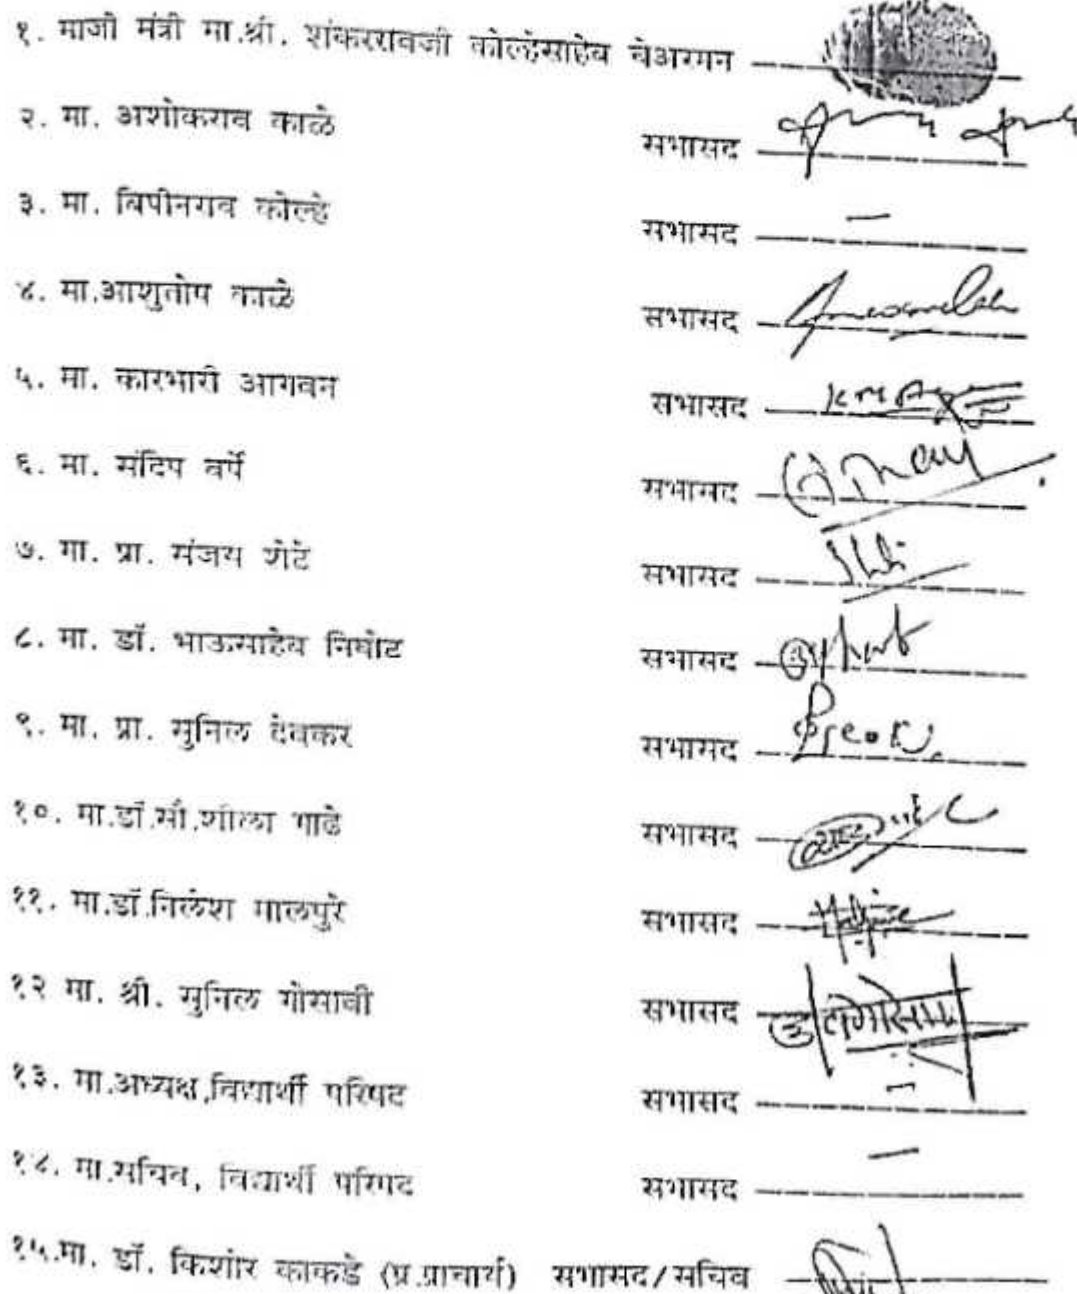 १. माजी मंत्री मा.श्री. शंकररावजी कोल्हेसाहेब चेअरमन
२. मा. अशोकराव काळे सभासद
३. मा. बिपीनराव कोल्हे सभासद —
४. मा.आशुतोष काळे सभासद
५. मा. कारभारी आगवन सभासद
६. मा. संदिप वर्पे सभासद
७. मा. प्रा. संजय शेटे सभासद
८. मा. डॉ. भाऊसाहेब निघोट सभासद
९. मा. प्रा. सुनिल देवकर सभासद
१०. मा.डॉ.सौ.शीला गाढे सभासद
११. मा.डॉ.निलेश मालपुरे सभासद
१२ मा. श्री. सुनिल गोसावी सभासद
१३. मा.अध्यक्ष,विद्यार्थी परिषद सभासद —
१४. मा.सचिव, विद्यार्थी परिषद सभासद —
१५.मा. डॉ. किशोर काकडे (प्र.प्राचार्य) सभासद/सचिव